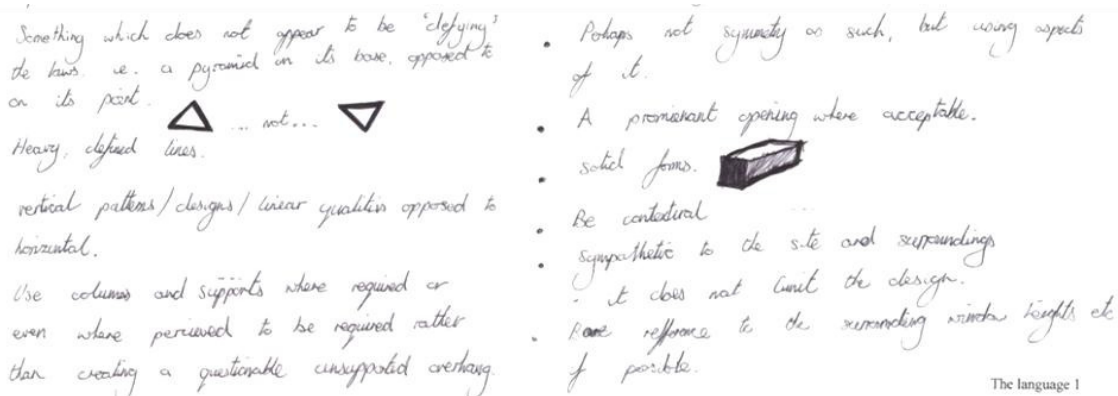 Something which does not appear to be 'defying'
the laws. i.e. a pyramid on its base, opposed to
on its point.
... not...
Heavy, defined lines.
vertical patterns/designs/linear qualities opposed to
horizontal.
Use columns and supports where required or
even where percieved to be required rather
than creating a questionable unsupported overhang.
• Perhaps not symmetry as such, but using aspects
of it.
• A prominant opening where acceptable.
• solid forms.
• Be contextural
• Sympathetic to the site and surroundings
- it does not limit the design.
• refference to the surrounding window heights etc
if possible.
The language 1